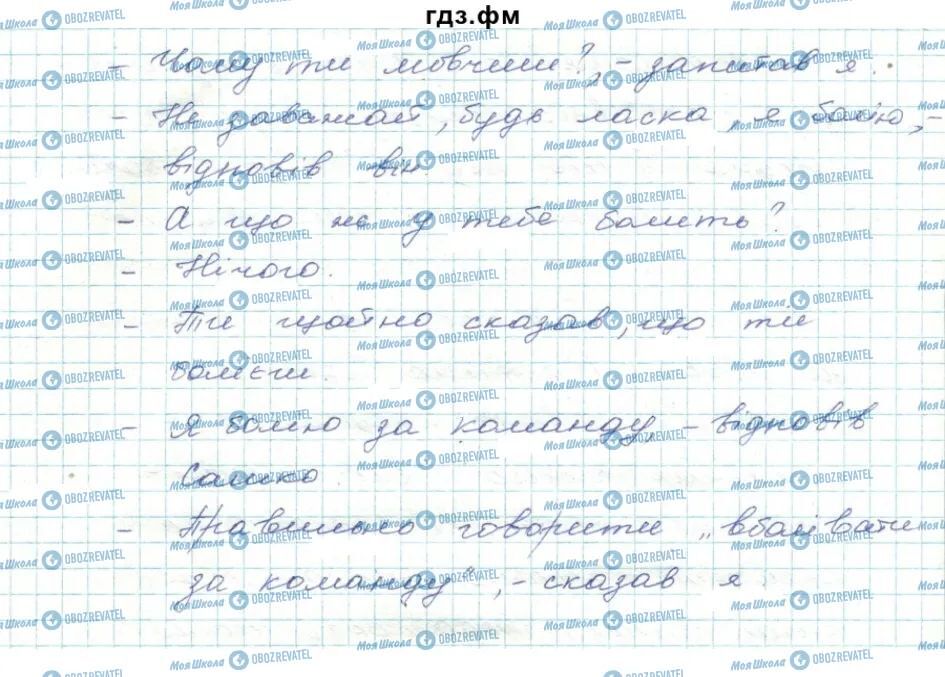 гдз.фм
- Чому ти мовчиш?, - запитав я.
- Не заважай, будь ласка, я болію, -
відповів він
- А що ж у тебе болить?
- Нічого.
- Ти щойно сказав, що ти
болієш.
- Я болію за команду, - відповів
Сашко
- Правильно говорити „вболівати
за команду", - сказав я